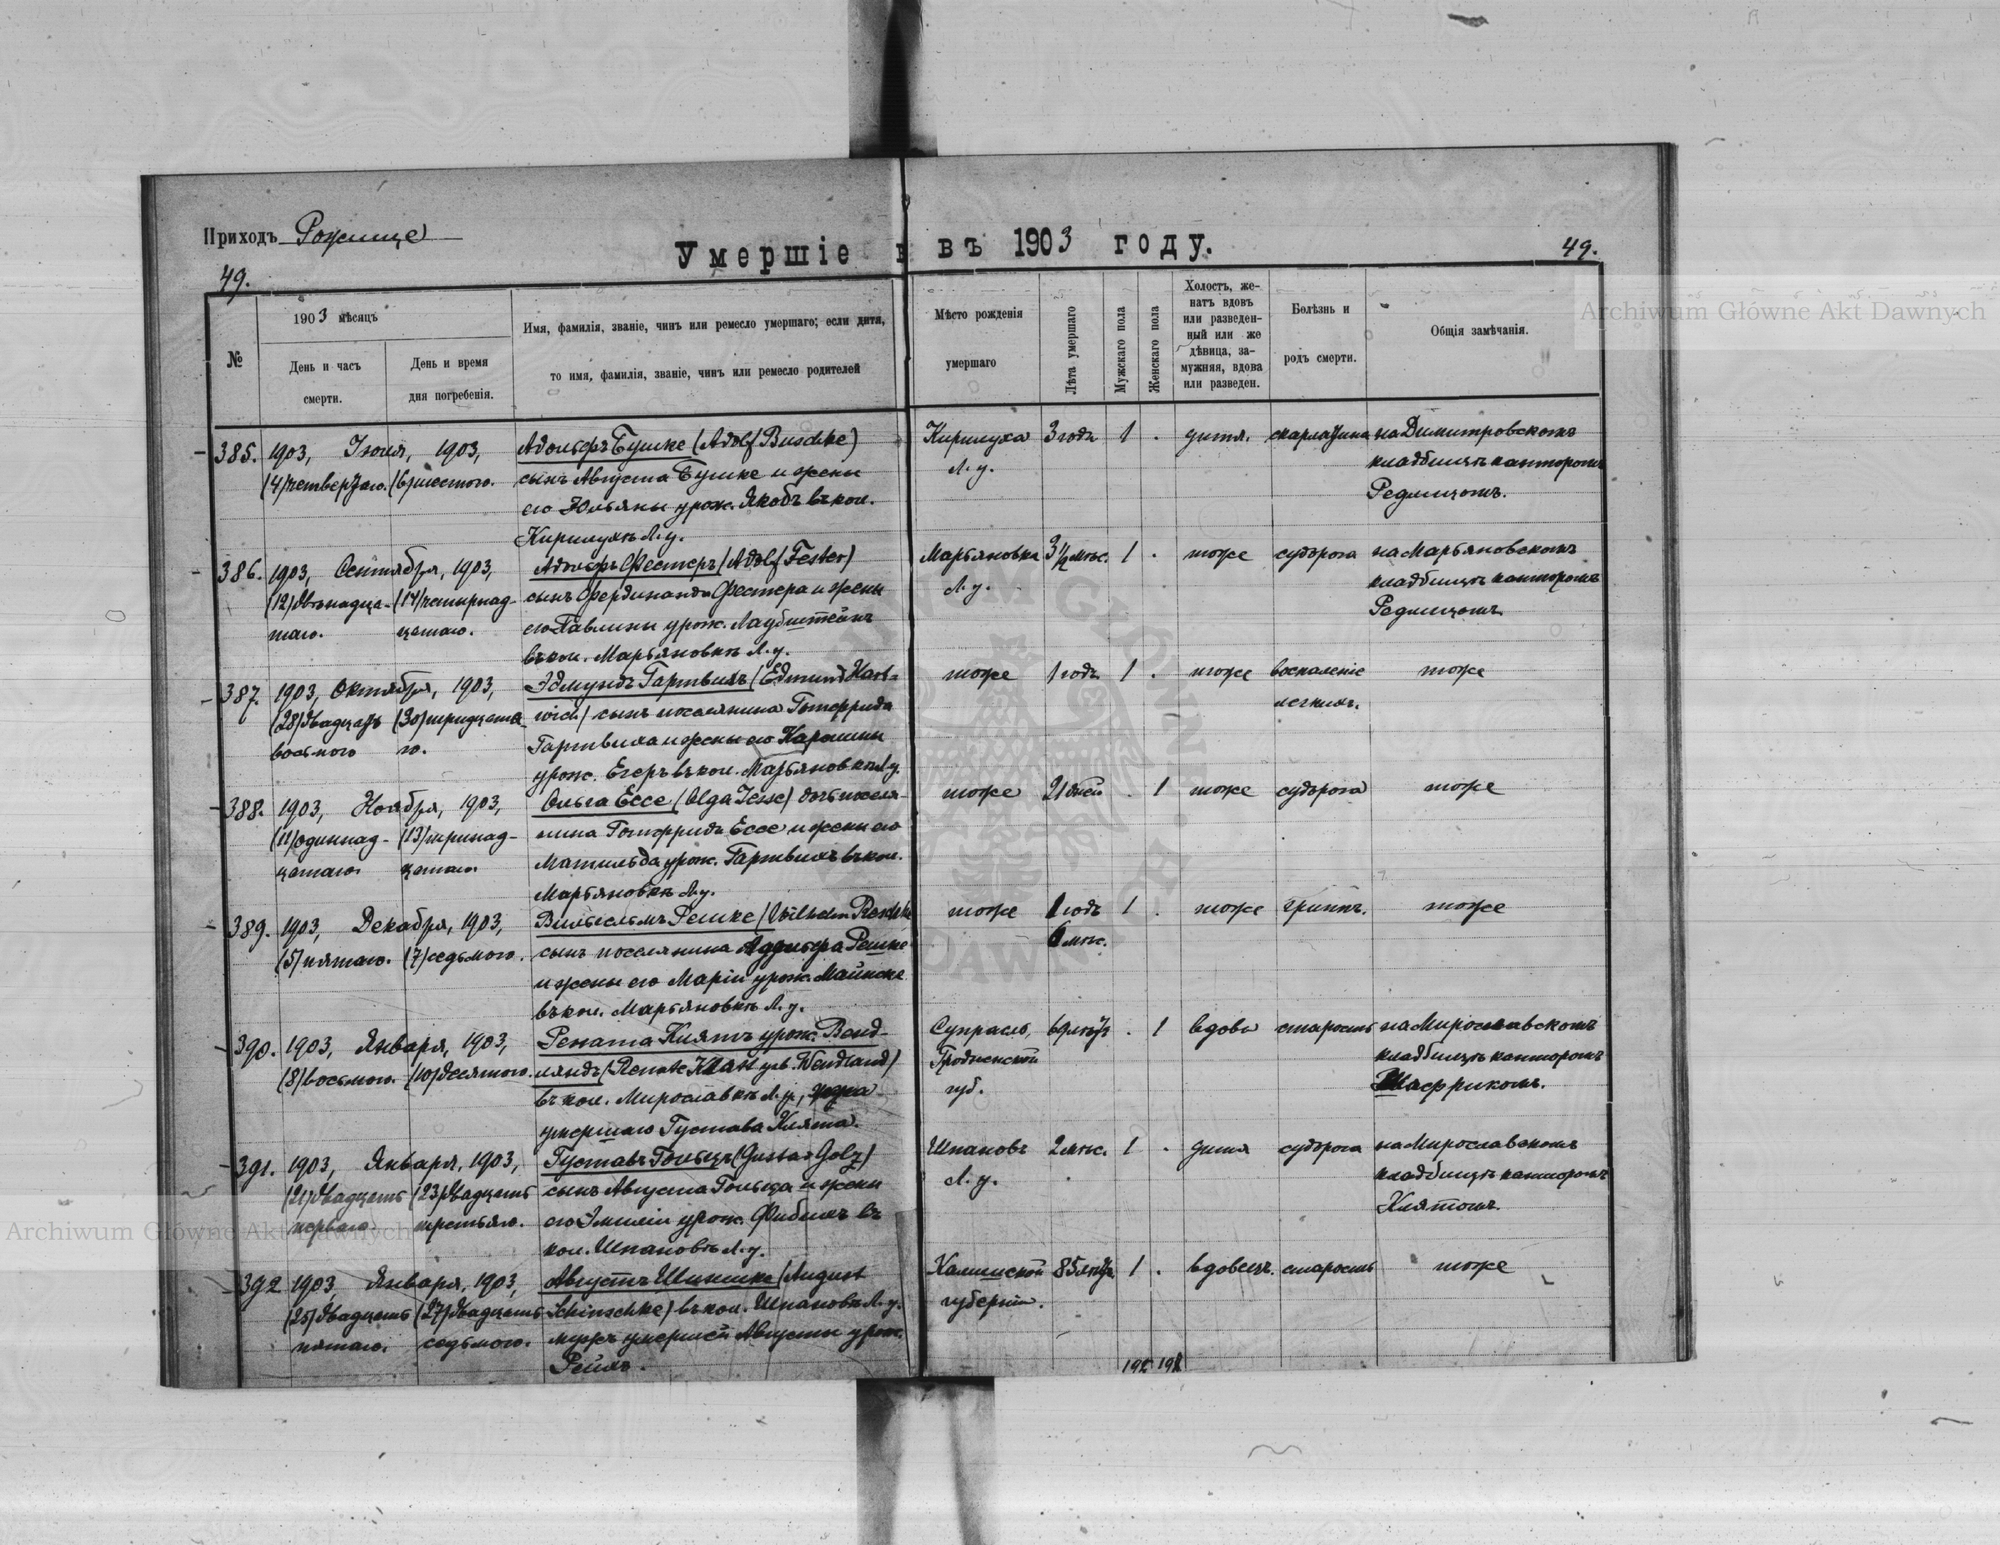 Приходъ Рожище
Умершіе въ 1903 году.
49.
49.
№
1903 мѣсяцъ
День и часъ
смерти.
День и время
дня погребенія.
Имя, фамилія, званіе, чинъ или ремесло умершаго; если дитя,
то имя, фамилія, званіе, чинъ или ремесло родителей
Мѣсто рожденія
умершаго
Лѣта умершаго
Мужскаго пола
Женскаго пола
Холостъ, же-
натъ вдовъ
или разведен-
ный или же
дѣвица, за-
мужняя, вдова
или разведен.
Болѣзнь и
родъ смерти.
Общія замѣчанія.
385. 1903, Іюля, 1903,
(4) четвертаго. (6) шестого.
Адольфъ Бушке (Adolf Buschke)
сынъ Августа Бушке и жены
его Юльяны урож. Якобъ въ кол.
Кирилухѣ Л. у.
Кирилуха
Л. у.
3 года 1 . дитя. скарлатина
на Димитровскомъ
кладбищѣ канторомъ
Редлицомъ.
386. 1903, Сентября, 1903,
(12) двѣнадца- (14) четырнад-
таго. цатаго.
Адольфъ Фестеръ (Adolf Fester)
сынъ Фердинанда Фестера и жены
его Павлины урож. Лаубштейнъ
въ кол. Марьяновкѣ Л. у.
Марьяновка
Л. у.
3 1/2 мѣс. 1 . тоже судорога
на Марьяновскомъ
кладбищѣ канторомъ
Редлицомъ
387. 1903, Октября, 1903,
(28) двадцать (30) тридцата-
восьмого го.
Эдмундъ Гартвихъ (Edmund Hart-
wich) сынъ поселянина Готфрида
Гартвиха и жены его Каролины
урож. Егеръ въ кол. Марьяновкѣ Л. у.
тоже 1 годъ 1 . тоже воспаленіе
легкихъ.
тоже
388. 1903, Ноября, 1903,
(11) одиннад- (13) тринад-
цатаго. цатаго.
Ольга Ессе (Olga Jesse) дочь поселя-
нина Готфрида Ессе и жены его
Матильда урож. Гартвихъ въ кол.
Марьяновкѣ Л. у.
тоже 21 дней . 1 тоже судорога тоже
389. 1903, Декабря, 1903,
(5) пятаго. (7) седьмого.
Вильгельмъ Решке (Wilhelm Reschke)
сынъ поселянина Адольфа Решке
и жены его Маріи урож. Маинске
въ кол. Марьяновкѣ Л. у.
тоже 1 годъ
6 мѣс.
1 . тоже гриппъ. тоже
390. 1903, Января, 1903,
(8) восьмого. (10) десятого.
Рената Клятъ урож. Венд-
ляндъ (Renate Klatt geb. Wendland)
въ кол. Мирославкѣ Л. у., жена
умершаго Густава Клята.
Супрасль
Гродненской
губ.
69 лѣтъ . 1 вдова старость
на Мирославскомъ
кладбищѣ канторомъ
391. 1903, Января, 1903,
(21) двадцать (23) двадцать
перваго третьяго.
Густавъ Гольцъ (Gustav Golz)
сынъ Августа Гольца и жены
его Эмиліи урож. Фибихъ въ
кол. Шпановъ Л. у.
Шпановъ
Л. у.
2 мѣс. 1 . дитя судорога
на Мирославскомъ
кладбищѣ канторомъ
Клятомъ.
392 1903, Января, 1903,
(25) двадцать (27) двадцать
пятаго. седьмого.
Августъ Шиншке (August
Schinschke) въ кол. Шпановъ Л. у.
мужъ умершей Августы урож.
Рейхъ.
Калишской
губерніи.
85 лѣтъ. 1 . вдовецъ. старость тоже
Archiwum Główne Akt Dawnych
Archiwum Główne Akt Dawnych